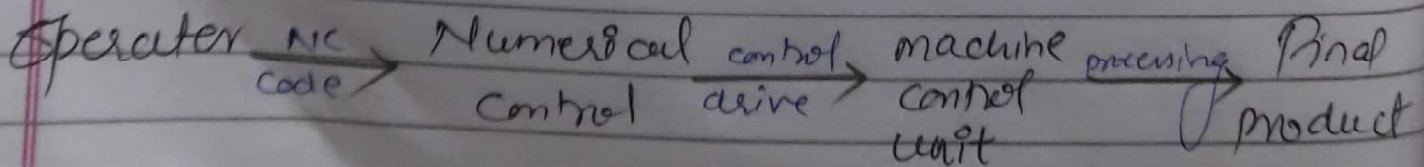 Operater NC Code → Numerical Control control drive → machine control unit processing → Final product